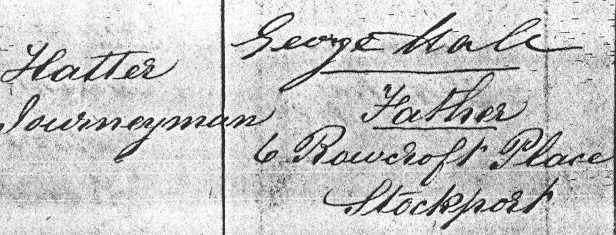 Hatter
Journeyman
George Hale
Father
6 Rowcroft Place
Stockport